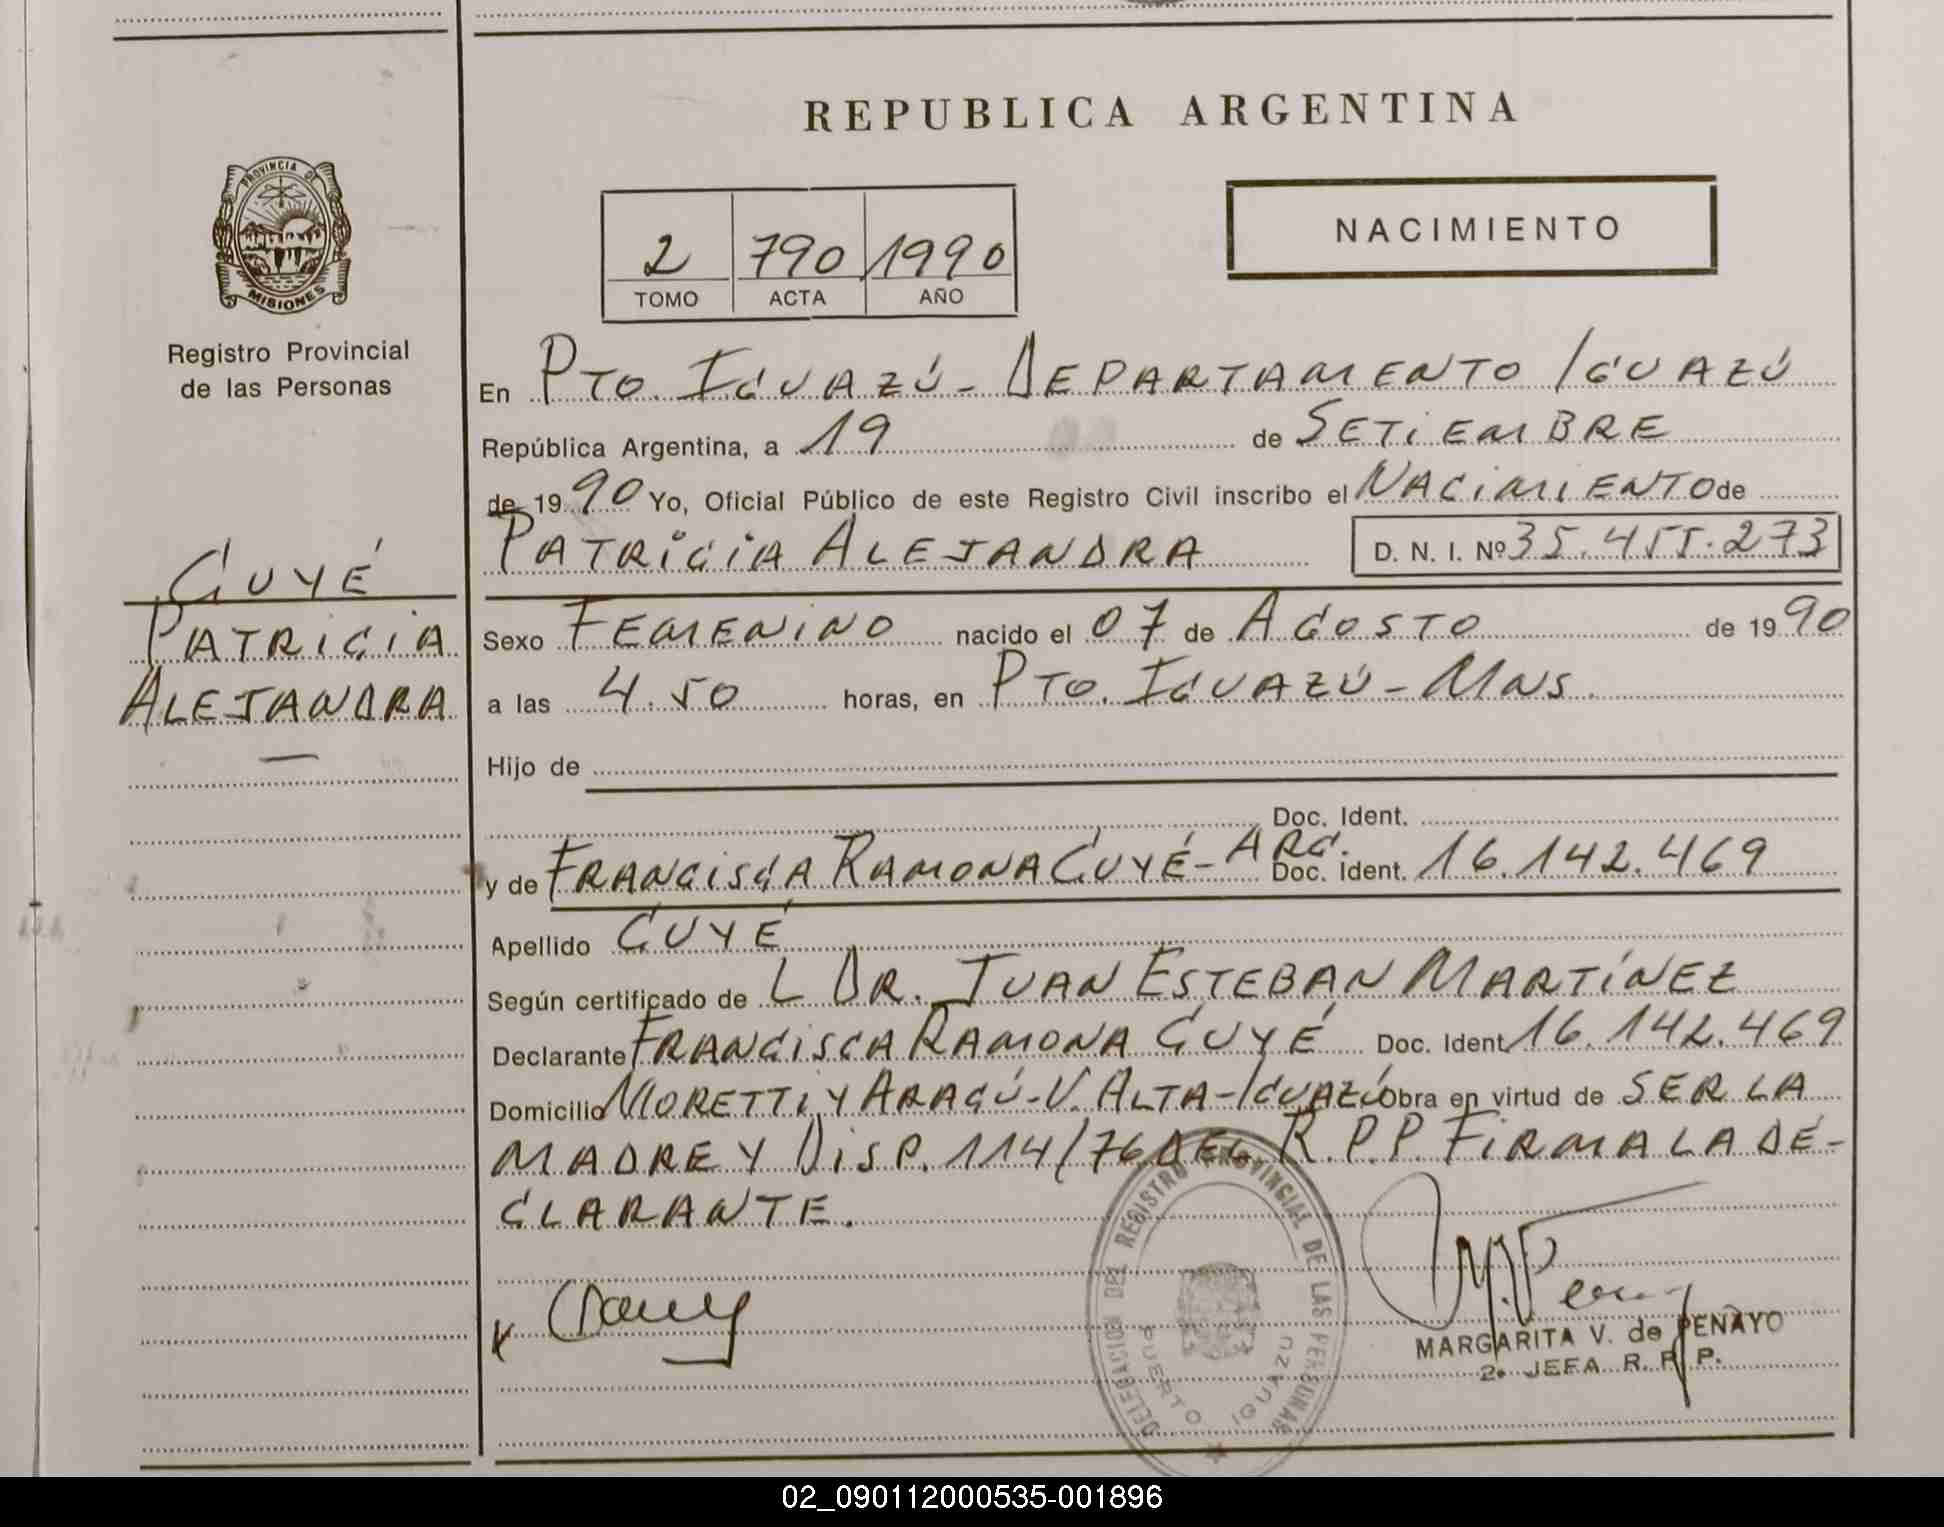 REPUBLICA ARGENTINA
PROVINCIA DE
MISIONES
Registro Provincial
de las Personas
2 790 1990
TOMO ACTA AÑO
NACIMIENTO
GUYÉ
PATRICIA
ALEJANDRA
En PTO. IGUAZÚ - DEPARTAMENTO IGUAZÚ
República Argentina, a 19 de SETIEMBRE
de 1990 Yo, Oficial Público de este Registro Civil inscribo el NACIMIENTO de
PATRICIA ALEJANDRA D. N. I. Nº 35.455.273
Sexo FEMENINO nacido el 07 de AGOSTO de 1990
a las 4.50 horas, en PTO. IGUAZÚ - MNS.
Hijo de
Doc. Ident.
y de FRANCISCA RAMONA GUYÉ - ARG. Doc. Ident. 16.142.469
Apellido GUYÉ
Según certificado de L DR. JUAN ESTEBAN MARTÍNEZ
Declarante FRANCISCA RAMONA GUYÉ Doc. Ident. 16.142.469
Domicilio MORETTI Y ARAGÚ - V. ALTA - IGUAZÚ Obra en virtud de SER LA
MADRE Y DISP. 114/76 DEL R.P.P. FIRMA LA DE-
CLARANTE.
DELEGACION DEL REGISTRO PROVINCIAL DE LAS PERSONAS
PUERTO IGUAZU
MARGARITA V. de PENAYO
2ª JEFA R. P. P.
02_090112000535-001896